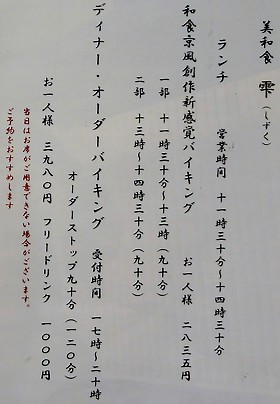 美和食 雫（しずく）
ランチ 営業時間 十一時三十分～十四時三十分
和食京風創作新感覚バイキング お一人様 二八三五円
一部 十一時三十分～十三時（九十分）
二部 十三時～十四時三十分（九十分）
ディナー・オーダーバイキング 受付時間 一七時～二十時
オーダーストップ九十分（一二〇分）
お一人様 三九八〇円 フリードリンク 一〇〇〇円
当日はお席がご用意できない場合がございます。
ご予約をおすすめします